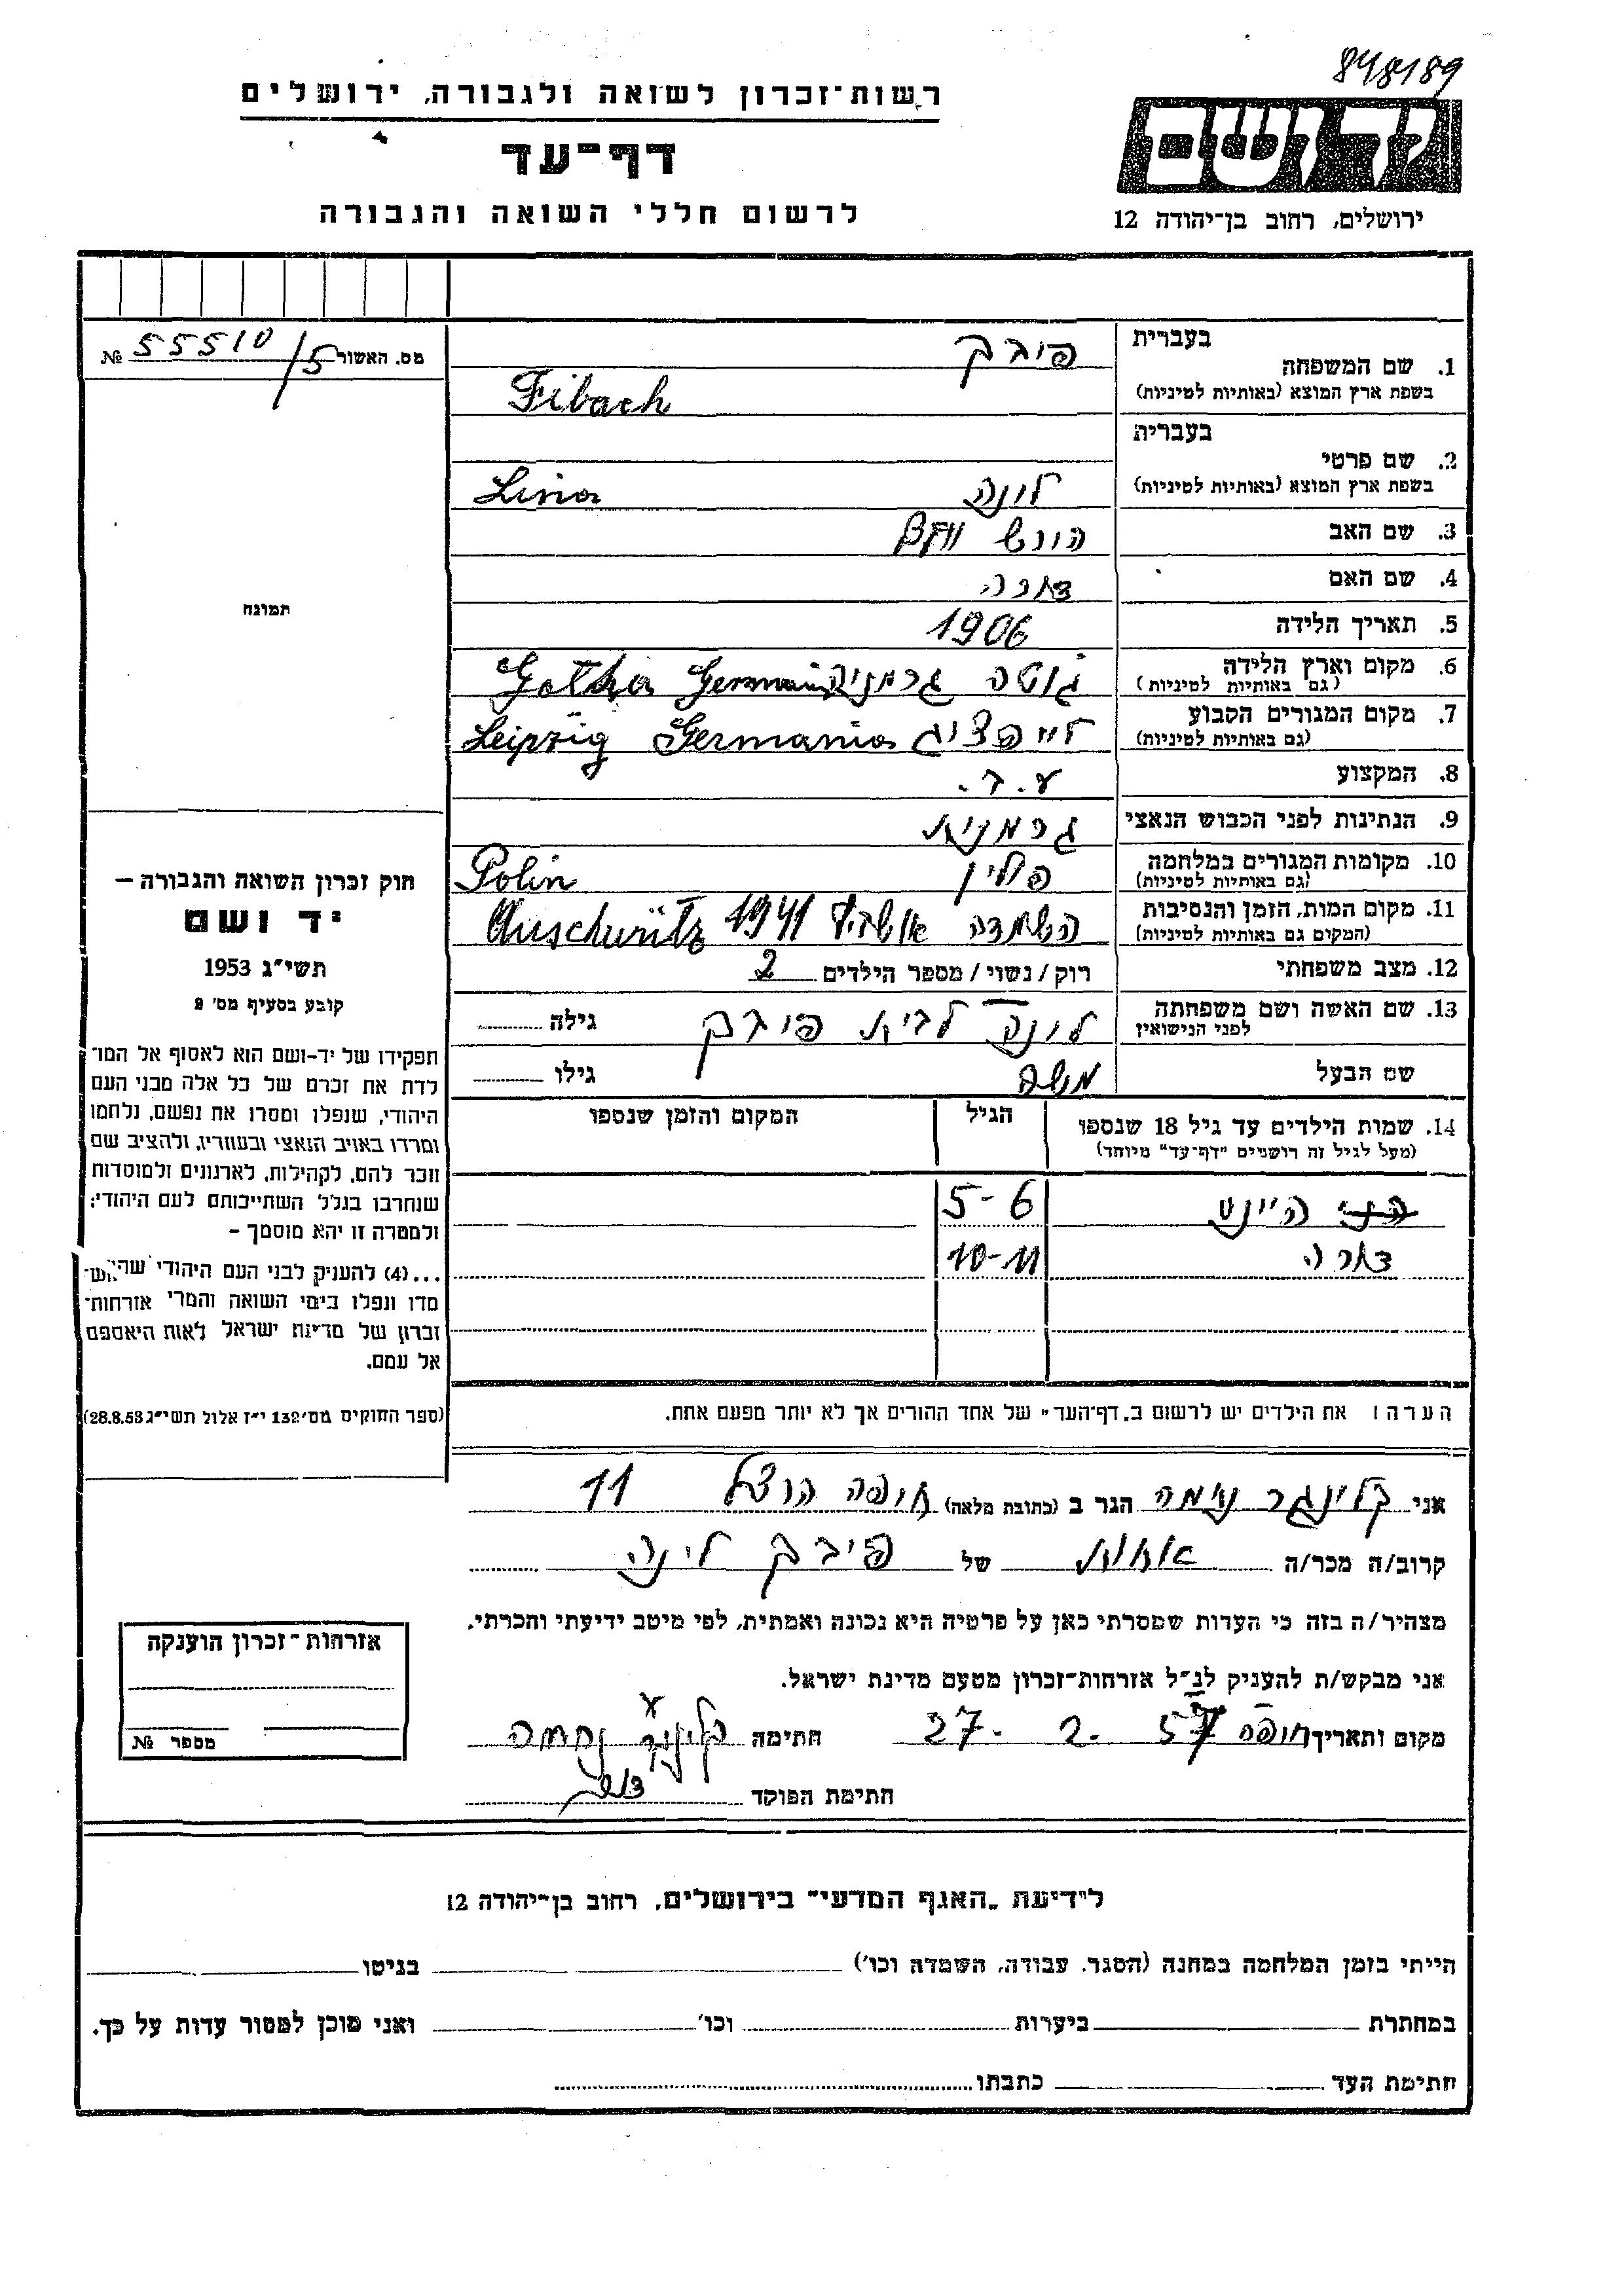 848189
רשות־זכרון לשואה ולגבורה, ירושלים
דף־עד
לרשום חללי השואה והגבורה
יד ושם
ירושלים, רחוב בן־יהודה 12
מס. האשור 55510/5 №
בעברית
1. שם המשפחה פיבך
בשפת ארץ המוצא (באותיות לטיניות) Fibach
בעברית
2. שם פרטי
בשפת ארץ המוצא (באותיות לטיניות) לינה Lina
3. שם האב הירש
4. שם האם
5. תאריך הלידה 1906
6. מקום וארץ הלידה
(גם באותיות לטיניות) גוטה גרמניה Gotha Germania
7. מקום המגורים הקבוע
(גם באותיות לטיניות) לייפציג Leipzig Germania
8. המקצוע ע. ב.
9. הנתינות לפני הכבוש הנאצי גרמנית
10. מקומות המגורים במלחמה
(גם באותיות לטיניות) פולין Polin
11. מקום המות, הזמן והנסיבות
(המקום גם באותיות לטיניות) השמדה 1941 Auschwitz
12. מצב משפחתי רוק/נשוי/מספר הילדים 2
13. שם האשה ושם משפחתה
לפני הנישואין לינה לבית פיבך גילה
שם הבעל משה גילו
14. שמות הילדים עד גיל 18 שנספו
(מעל לגיל זה רושמים "דף־עד" מיוחד)
הגיל
המקום והזמן שנספו
היינט 5-6
10-11
הערה! את הילדים יש לרשום ב„דף־העד" של אחד ההורים אך לא יותר מפעם אחת.
תמונה
חוק זכרון השואה והגבורה –
יד ושם
תשי"ג 1953
קובע בסעיף מס' 2
תפקידו של יד-ושם הוא לאסוף אל המו־
לדת את זכרם של כל אלה מבני העם
היהודי, שנפלו ומסרו את נפשם, נלחמו
ומרדו באויב הנאצי ובעוזריו, ולהציב שם
וזכר להם, לקהילות, לארגונים ולמוסדות
שנחרבו בגלל השתייכותם לעם היהודי;
ולמטרה זו יהא מוסמך –
...(4) להעניק לבני העם היהודי שהוש־
מדו ונפלו בימי השואה והמרי אזרחות־
זכרון של מדינת ישראל לאות היאספם
אל עמם.
(ספר החוקים מס' 132 י"ז אלול תשי"ג 28.8.53)
אני קלינגר נחמה הגר ב (כתובת מלאה) חיפה הרצל 11
קרוב/ה מכר/ה אחות של פיבך לינה
מצהיר/ה בזה כי העדות שמסרתי כאן על פרטיה היא נכונה ואמתית, לפי מיטב ידיעתי והכרתי.
אני מבקש/ת להעניק לנ"ל אזרחות־זכרון מטעם מדינת ישראל.
מקום ותאריך חיפה 27. 2. 57 חתימה קלינגר נחמה
חתימת הפוקד
אזרחות־זכרון הוענקה
מספר №
לידיעת „האגף המדעי" בירושלים, רחוב בן־יהודה 12
הייתי בזמן המלחמה במחנה (הסגר, עבודה, השמדה וכו') בגיטו
במחתרת ביערות וכו' ואני מוכן למסור עדות על כך.
חתימת העד כתבתו